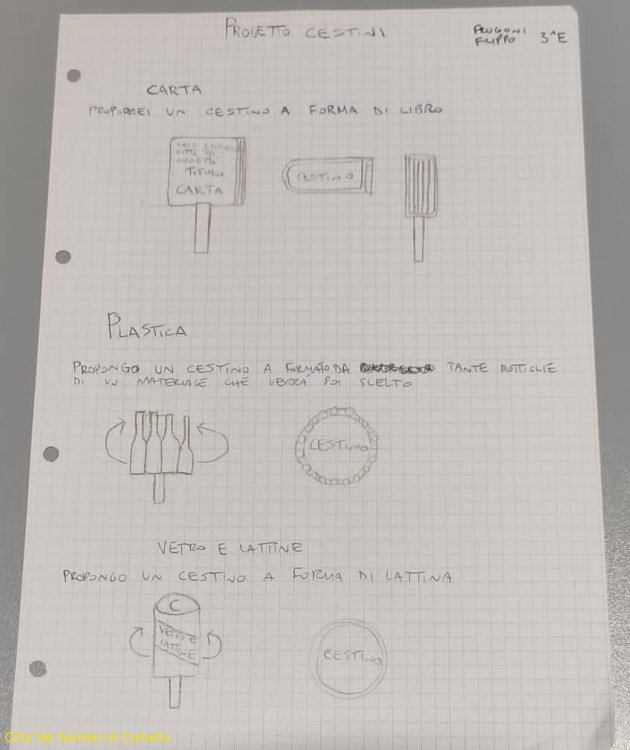 PROGETTO CESTINI
FRUGONI
FILIPPO 3^E
CARTA
PROPORREI UN CESTINO A FORMA DI LIBRO
TITOLO
CARTA
CESTINO
PLASTICA
PROPONGO UN CESTINO A FORMATO DA TANTE BOTTIGLIE
DI UN MATERIALE CHE VERRA POI SCELTO
CESTINO
VETRO E LATTINE
PROPONGO UN CESTINO A FORMA DI LATTINA
C
VETRO E
LATTINE
CESTINO
Citta' dei bambini di Corbetta